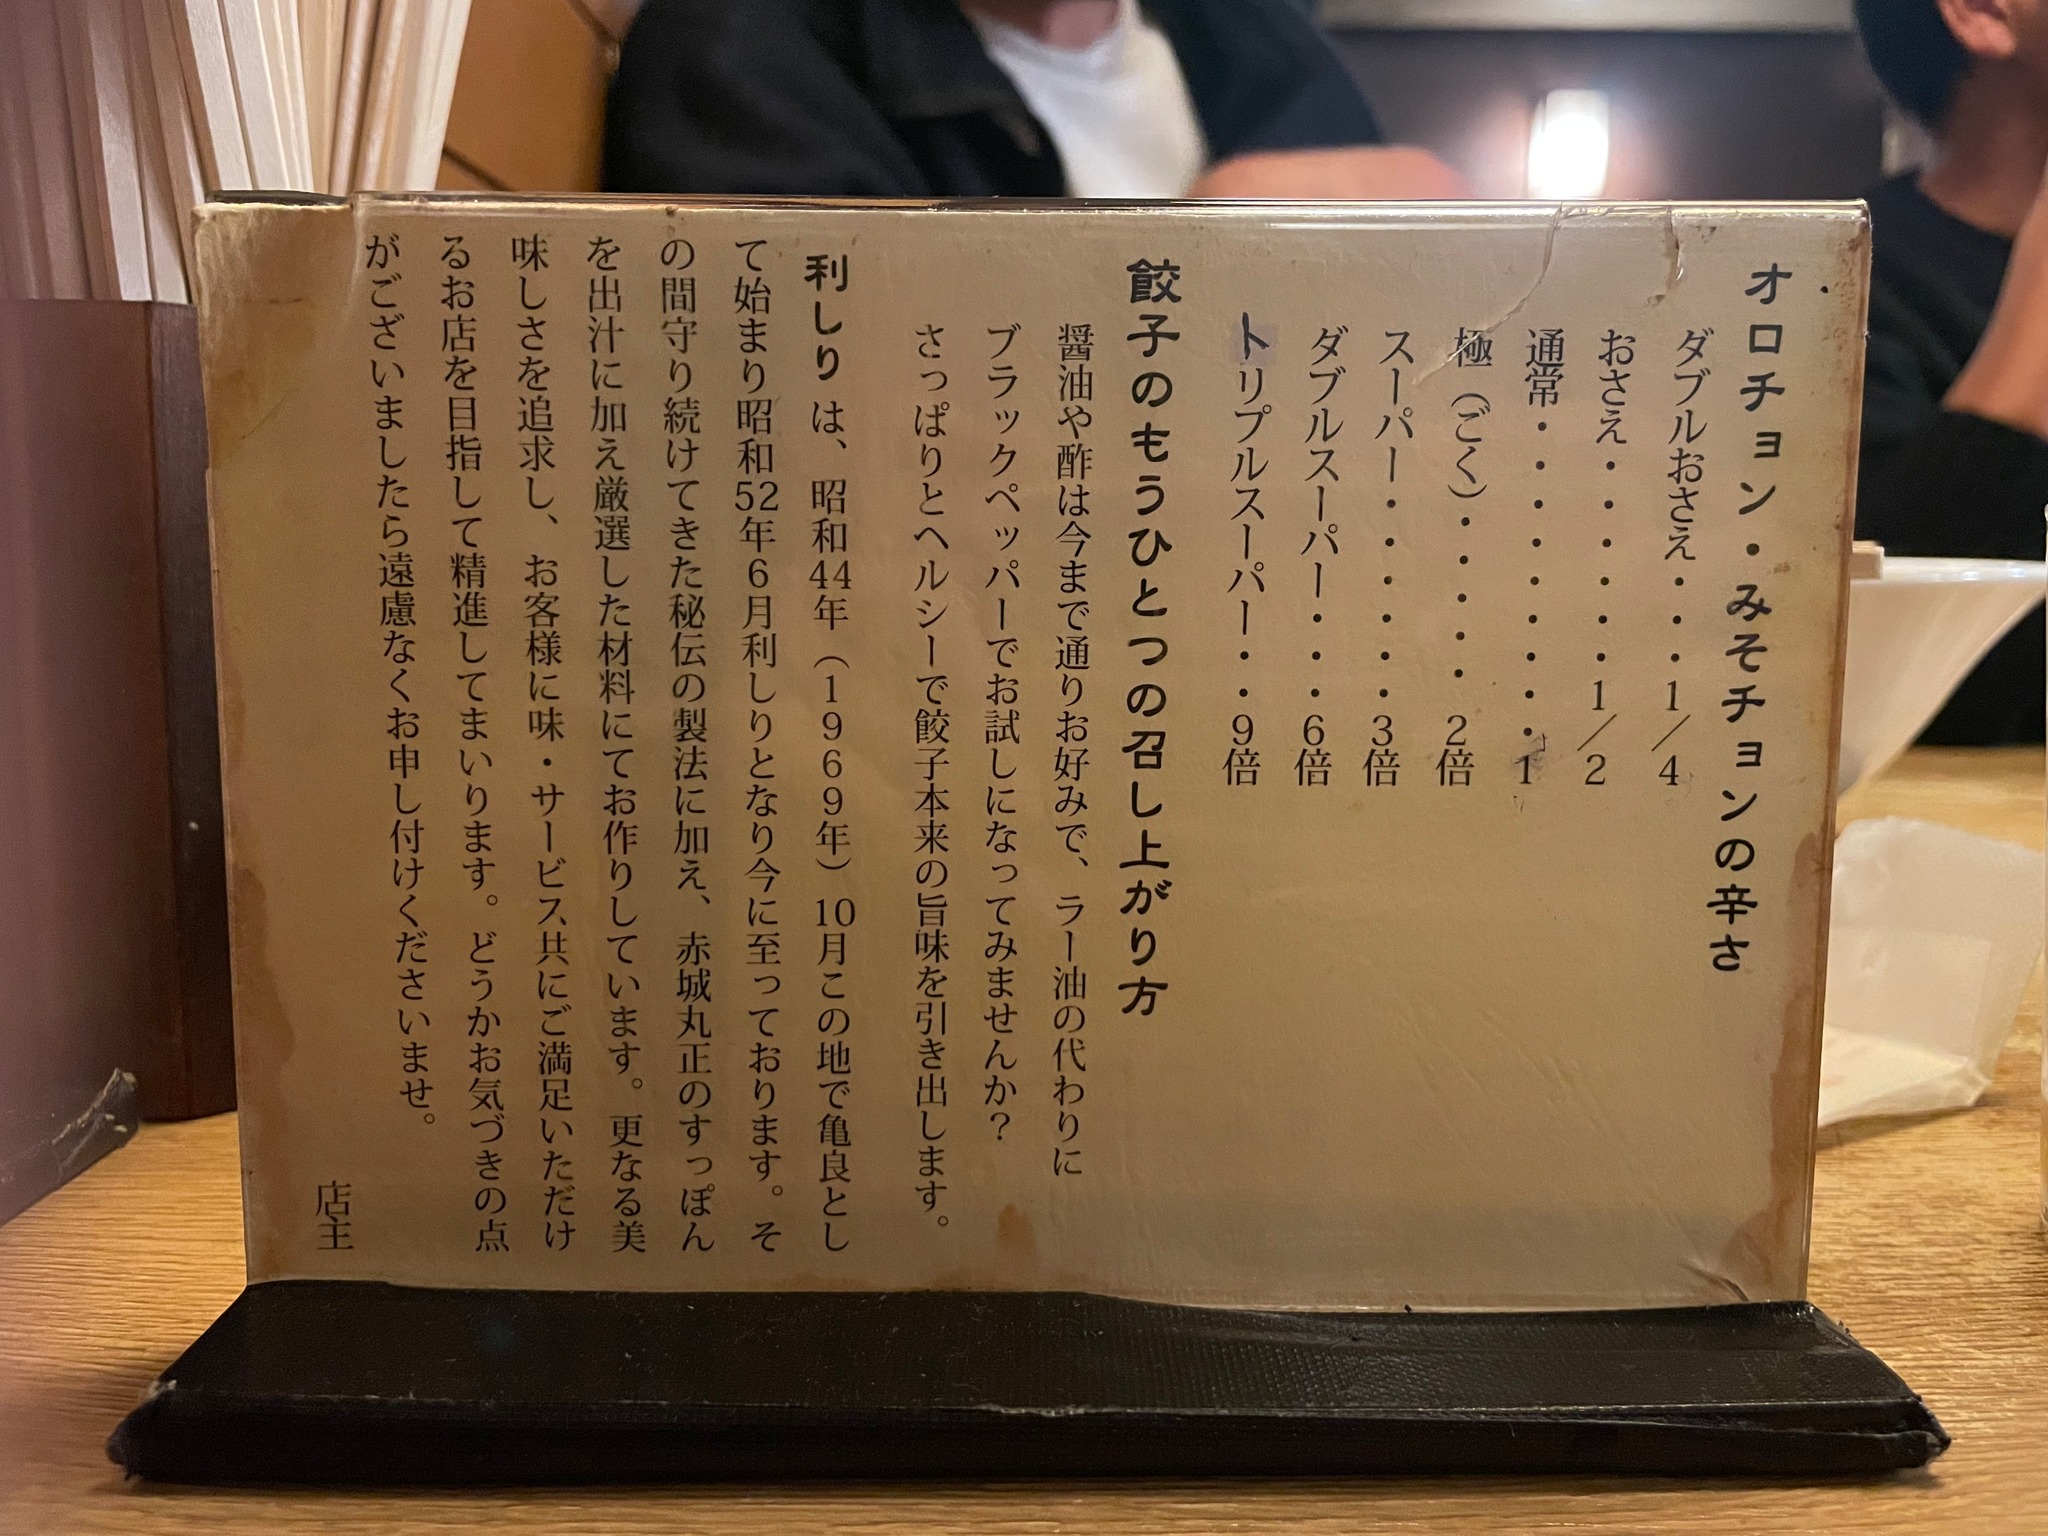 オロチョン・みそチョンの辛さ
ダブルおさえ・・・1／4
おさえ・・・・・・1／2
通常・・・・・・・・・1
極（ごく）・・・・・2倍
スーパー・・・・・・3倍
ダブルスーパー・・・6倍
トリプルスーパー・・9倍
餃子のもうひとつの召し上がり方
醤油や酢は今まで通りお好みで、ラー油の代わりに
ブラックペッパーでお試しになってみませんか？
さっぱりとヘルシーで餃子本来の旨味を引き出します。
利しりは、昭和44年（1969年）10月この地で亀良とし
て始まり昭和52年6月利しりとなり今に至っております。そ
の間守り続けてきた秘伝の製法に加え、赤城丸正のすっぽん
を出汁に加え厳選した材料にてお作りしています。更なる美
味しさを追求し、お客様に味・サービス共にご満足いただけ
るお店を目指して精進してまいります。どうかお気づきの点
がございましたら遠慮なくお申し付けくださいませ。
店主